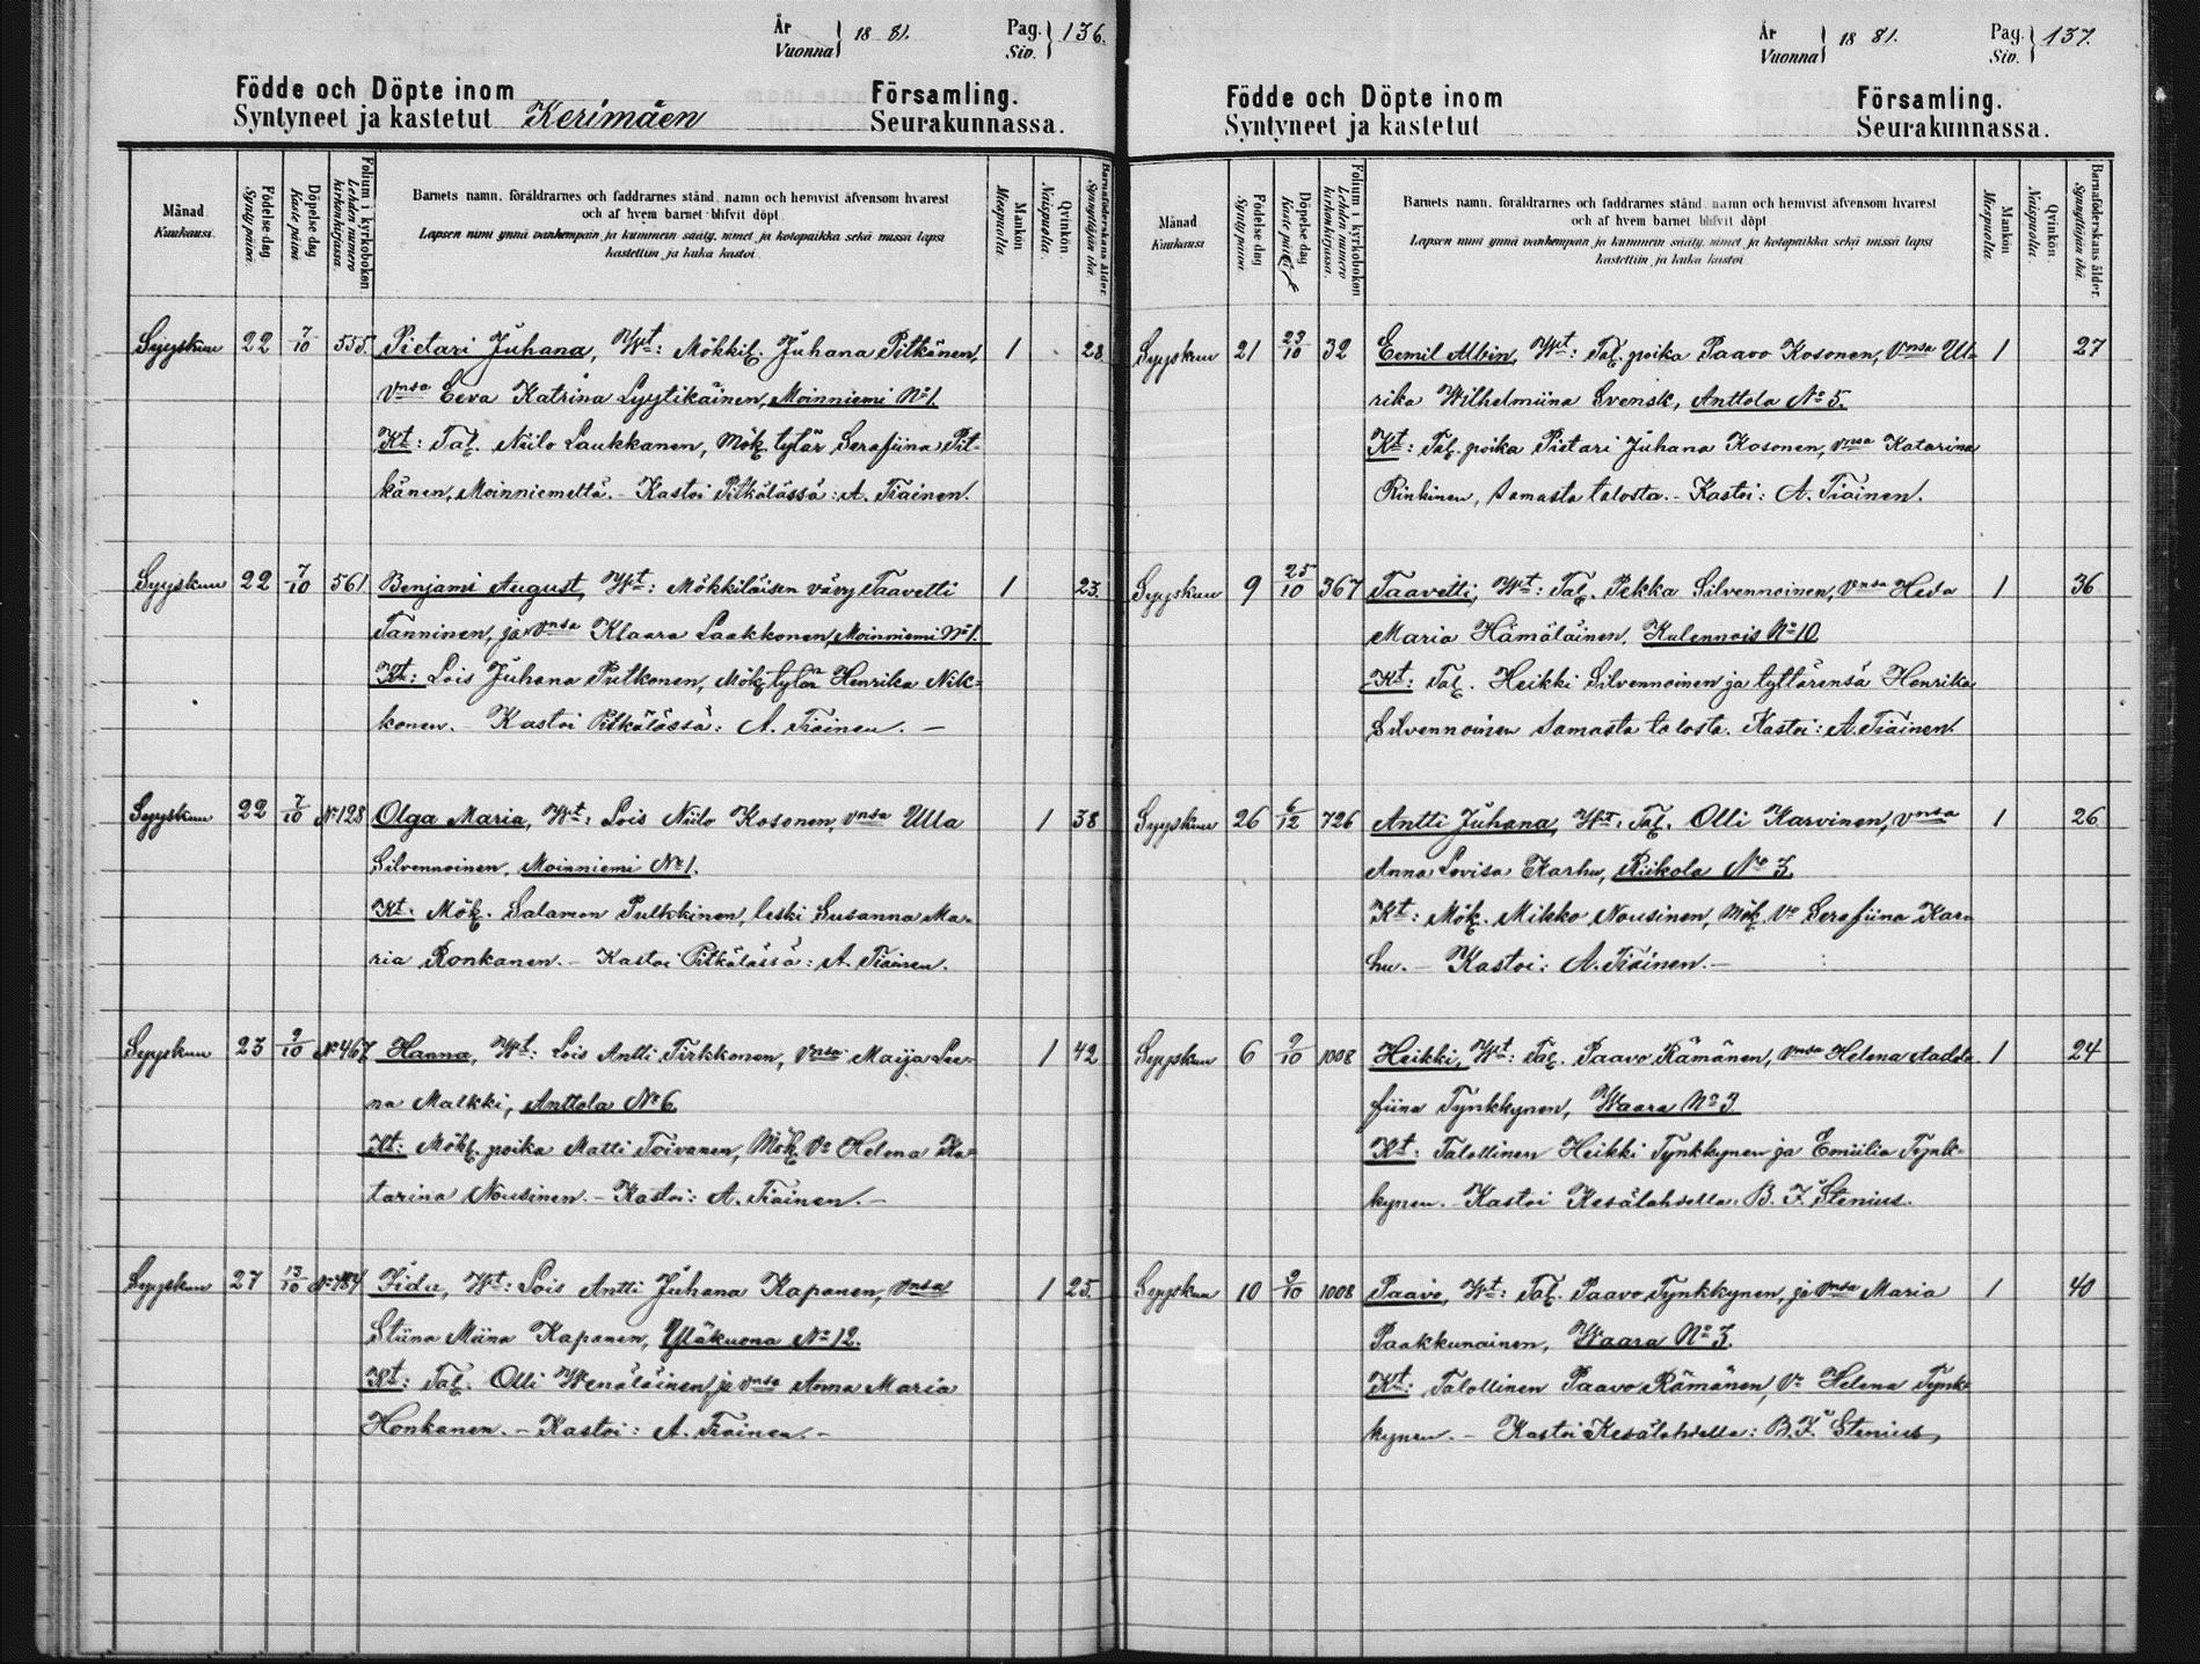 År
Vuonna 18 81.
Pag.
Siv. 136.
Födde och Döpte inom Församling.
Syntyneet ja kastetut Kerimäen Seurakunnassa.
Månad
Kuukausi.
Födelse dag
Synty päivä.
Döpelse dag
Kaste päivä
Folium i kyrkoboken
Lehden numero kirkonkirjassa.
Barnets namn, föräldrarnes och faddrarnes stånd, namn och hemvist äfvensom hvarest
och af hvem barnet blifvit döpt.
Lapsen nimi ynnä vanhempain ja kummein sääty, nimet ja kotopaikka sekä missä lapsi
kastettiin ja kuka kastoi.
Mankön
Miespuolta.
Qvinkön.
Naispuolta.
Barnaföderskans ålder.
Synnyttäjän ikä.
Syyskuu 22 7/10 555. Pietari Juhana, Wt: Mökkil. Juhana Pitkänen, 1 28
Vnsa Eeva Katrina Lyytikäinen, Moinniemi No 1.
Kt: Tal. Niilo Laukkanen, Mök. tytär Serafiina Pit-
känen, Moinniemeltä. - Kastoi Pitkälässä: A. Tiainen.
Syyskuu 22 7/10 561 Benjami August, Wt: Mökkiläisen vävy Taavetti 1 23.
Tanninen, ja vnsa Klaara Laakkonen, Moinniemi No 1.
Kt: Lois Juhana Putkonen, Mök. Henrika Nik-
konen. - Kastoi Pitkälässä: A. Tiainen. -
Syyskuu 22 7/10 No 128 Olga Maria, Wt: Lois Niilo Kosonen, vnsa Ulla 1 38
Silvennoinen, Moinniemi No 1.
Kt. Mök. Salamon Pulkkinen, leski Susanna Ma-
ria Ronkanen. - Kastoi Pitkälässä: A. Tiainen.
Syyskuu 23 9/10 No 467 Hanna, Wt: Lois Antti Tirkkonen, Vnsa Maija Lee-
na Malkki, Anttola No 6. 1 42
Kt: Mökl. poika Matti Toivanen, Mök. Vo Helena Ka-
tarina Nousinen. - Kastoi: A. Tiainen. -
Syyskuu 27 13/10 No 484 Fida, Wt: Lois Antti Juhana Kaponen, Vnsa 1 25.
Stiina Miina Kaponen, Yläkuona No 12.
Kt: Tal. Olli Wenäläinen, ja vnsa Anna Maria
Honkanen. - Kastoi: A. Tiainen. -
År
Vuonna 18 81.
Pag.
Siv. 137.
Födde och Döpte inom Församling.
Syntyneet ja kastetut Seurakunnassa.
Månad
Kuukausi
Födelse dag
Synty päivä.
Döpelse dag
Kaste päivä
Folium i kyrkoboken
Lehden numero kirkonkirjassa.
Barnets namn, föräldrarnes och faddrarnes stånd, namn och hemvist äfvensom hvarest
och af hvem barnet blifvit döpt
Lapsen nimi ynnä vanhempain ja kummein sääty, nimet ja kotopaikka sekä missä lapsi
kastettiin ja kuka kastoi
Mankön
Miespuolta
Qvinkön.
Naispuolta
Barnaföderskans ålder.
Synnyttäjän ikä.
Syyskuu 21 23/10 32 Eemil Albin, Wt: Tal. poika Paavo Kosonen, Vnsa Ul- 1 27
rika Wilhelmiina Svensk, Anttola No 5.
Kt: Tal. poika Pietari Juhana Kosonen, vnsa Katarina
Rinkinen, samasta talosta. - Kastoi: A. Tiainen.
Syyskuu 9 25/10 367 Taavetti, Wt: Tal. Pekka Silvennoinen, Vnsa Heda 1 36
Maria Hämäläinen, Kulennois No 10
Kt: Tal. Heikki Silvennoinen ja tyttärensä Henrika
Silvennoinen samasta talosta. Kastoi: A. Tiainen.
Syyskuu 26 6/12 726 Antti Juhana, Wt: Tal. Olli Karvinen, vnsa 1 26
Anna Lovisa Karhu, Riikola No 3.
Kt: Mök. Mikko Nousinen, Mök. Vo Serafiina Kar-
hu. - Kastoi: A. Tiainen. -
Syyskuu 6 9/10 1008 Heikki, Wt: Tal. Paavo Rämänen, vnsa Helena Aadol- 1 24
fiina Tynkkynen, Waara No 3
Kt: Talollinen Heikki Tynkkynen ja Emiilia Tynk-
kynen. - Kastoi Kesälahdella: B. F. Stenius.
Syyskuu 10 9/10 1008 Paavo, Wt: Tal. Paavo Tynkkynen, ja vnsa Maria 1 40
Paakkunainen, Waara No 3.
Kt: Talollinen Paavo Rämänen, Vo Helena Tynk-
kynen. - Kastoi Kesälahdella: B. F. Stenius,